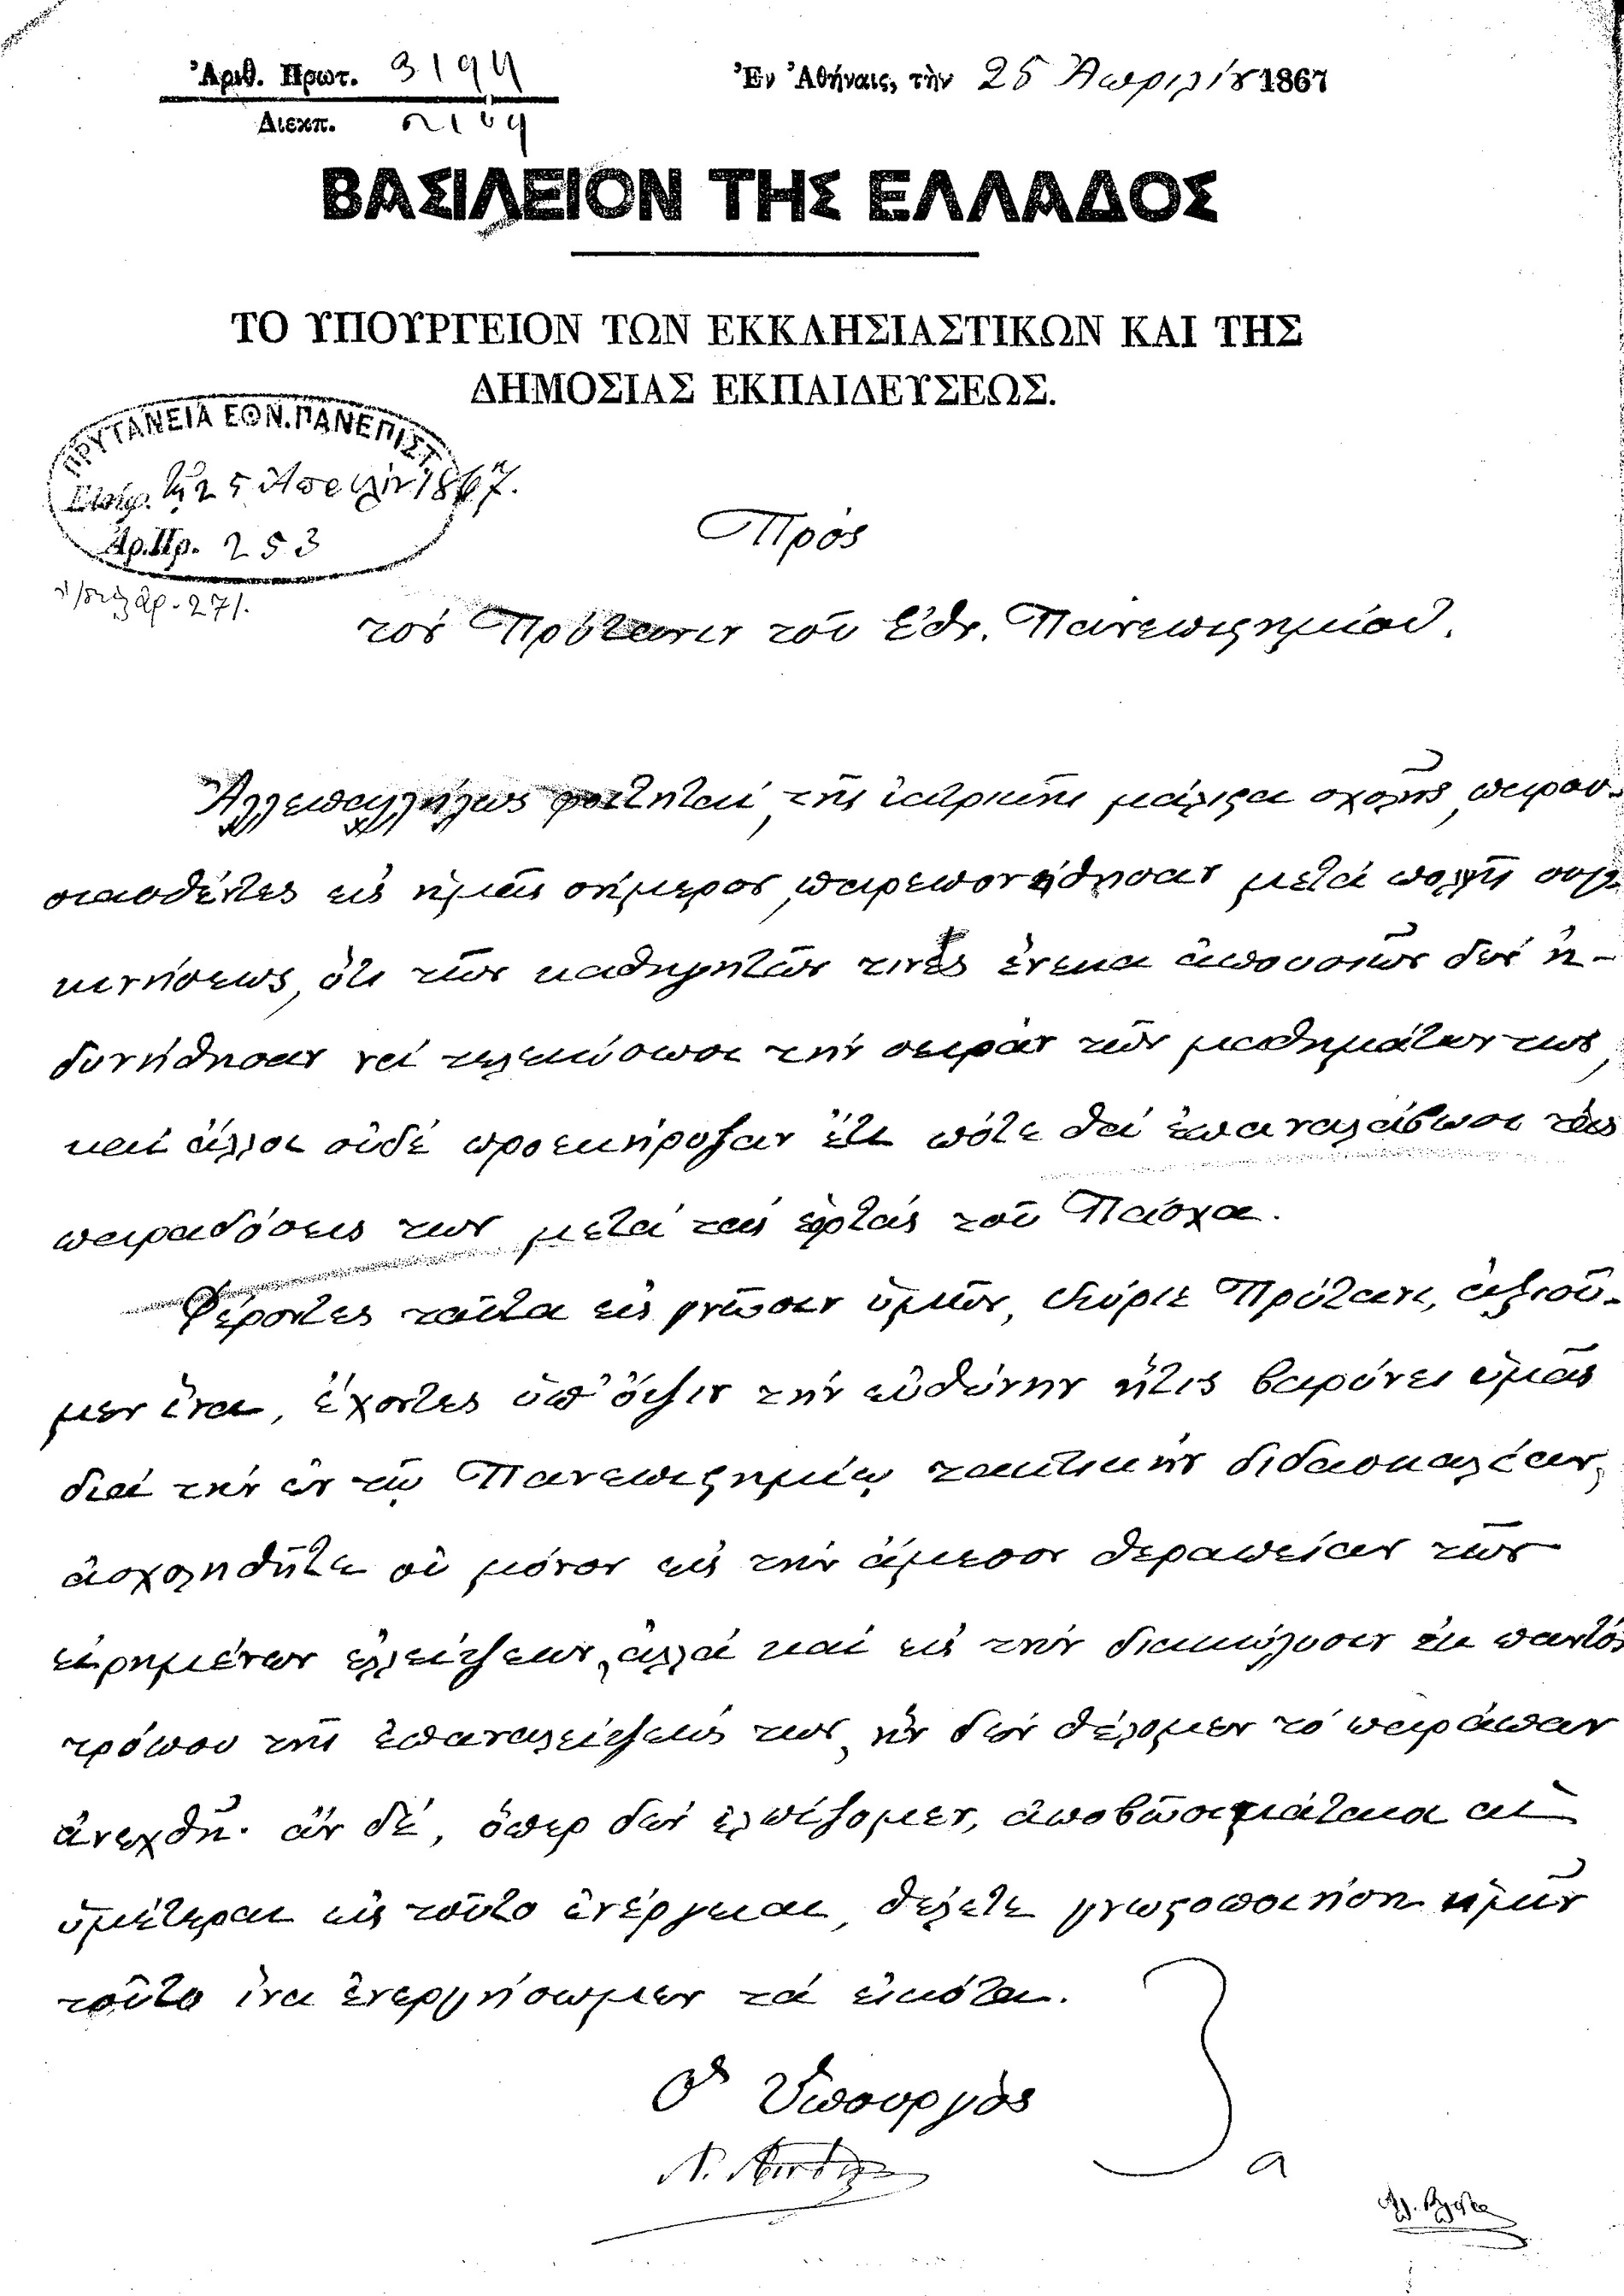 Ἀριθ. Πρωτ. 3194 Ἐν Ἀθήναις, τὴν 25 Ἀπριλίου 1867
Διεκπ.
ΒΑΣΙΛΕΙΟΝ ΤΗΣ ΕΛΛΑΔΟΣ
ΤΟ ΥΠΟΥΡΓΕΙΟΝ ΤΩΝ ΕΚΚΛΗΣΙΑΣΤΙΚΩΝ ΚΑΙ ΤΗΣ
ΔΗΜΟΣΙΑΣ ΕΚΠΑΙΔΕΥΣΕΩΣ.
ΠΡΥΤΑΝΕΙΑ ΕΘΝ. ΠΑΝΕΠΙΣΤ.
τῇ 25 Ἀπριλίου 1867.
Ἀρ. Πρ. 253
ἀρ. 271.
Πρὸς
τὸν Πρύτανιν τοῦ Ἐθν. Πανεπιστημίου.
Ἀλλεπαλλήλως φοιτηταὶ, τῆς ἰατρικῆς μάλιστα σχολῆς, παρου-
σιασθέντες εἰς ἡμᾶς σήμερον, παρεπονέθησαν μετὰ πολλῆς συγ-
κινήσεως, ὅτι τῶν καθηγητῶν τινὲς ἕνεκα ἀπουσιῶν δὲν ἠ-
δυνήθησαν νὰ τελειώσωσι τὴν σειρὰν τῶν μαθημάτων των,
καὶ ἄλλοι οὐδὲ προεκήρυξαν ἔτι πότε θὰ ἐπαναλάβωσι τὰς
παραδόσεις των μετὰ τὰς ἑορτὰς τοῦ Πάσχα.
Φέροντες ταῦτα εἰς γνῶσιν ὑμῶν, Κύριε Πρύτανι, ἀξιοῦ-
μεν ἵνα, ἔχοντες ὑπ' ὄψιν τὴν εὐθύνην ἥτις βαρύνει ὑμᾶς
διὰ τὴν ἐν τῷ Πανεπιστημίῳ τακτικὴν διδασκαλίαν,
ἀσχοληθῆτε οὐ μόνον εἰς τὴν ἄμεσον θεραπείαν τῶν
εἰρημένων ἐλλείψεων, ἀλλὰ καὶ εἰς τὴν διακώλυσιν ἐκ παντὸς
τρόπου τῆς ἐπαναλείψεώς των, ἣν δὲν θέλομεν τὸ παράπαν
ἀνεχθῆ· ἂν δὲ, ὅπερ δὲν ἐλπίζομεν, ἀποβῶσι μάταιαι αἱ
ὑμέτεραι εἰς τοῦτο ἐνέργειαι, θέλετε γνωστοποιήσῃ ἡμῖν
τοῦτο ἵνα ἐνεργήσωμεν τὰ εἰκότα.
Ὁ Ὑπουργὸς